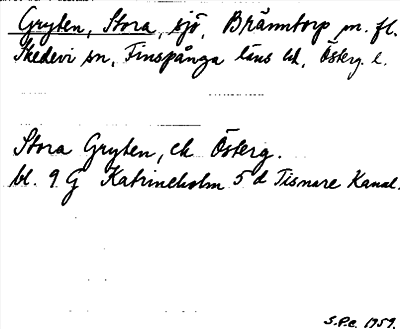 Gryten, Stora, sjö, Bränntorp m. fl.
Skedevi sn, Finspånga läns hd, Österg. l.
Stora Gryten, ek Österg.
bl. 9 G Katrineholm 5 d Tisnare Kanal.
S.P.e. 1959.